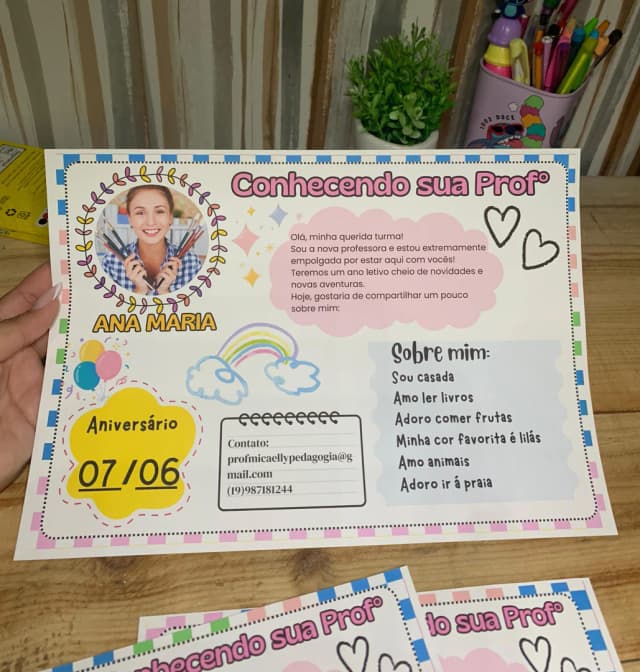 JUDZ DOCE
Conhecendo sua Profº
Olá, minha querida turma!
Sou a nova professora e estou extremamente
empolgada por estar aqui com vocês!
Teremos um ano letivo cheio de novidades e
novas aventuras.
Hoje, gostaria de compartilhar um pouco
sobre mim:
ANA MARIA
Sobre mim:
Sou casada
Amo ler livros
Adoro comer frutas
Minha cor favorita é lilás
Amo animais
Adoro ir á praia
Aniversário
07/06
Contato:
profmicaellypedagogia@g
mail.com
(19)987181244
nhecendo sua Profº
do sua Profº